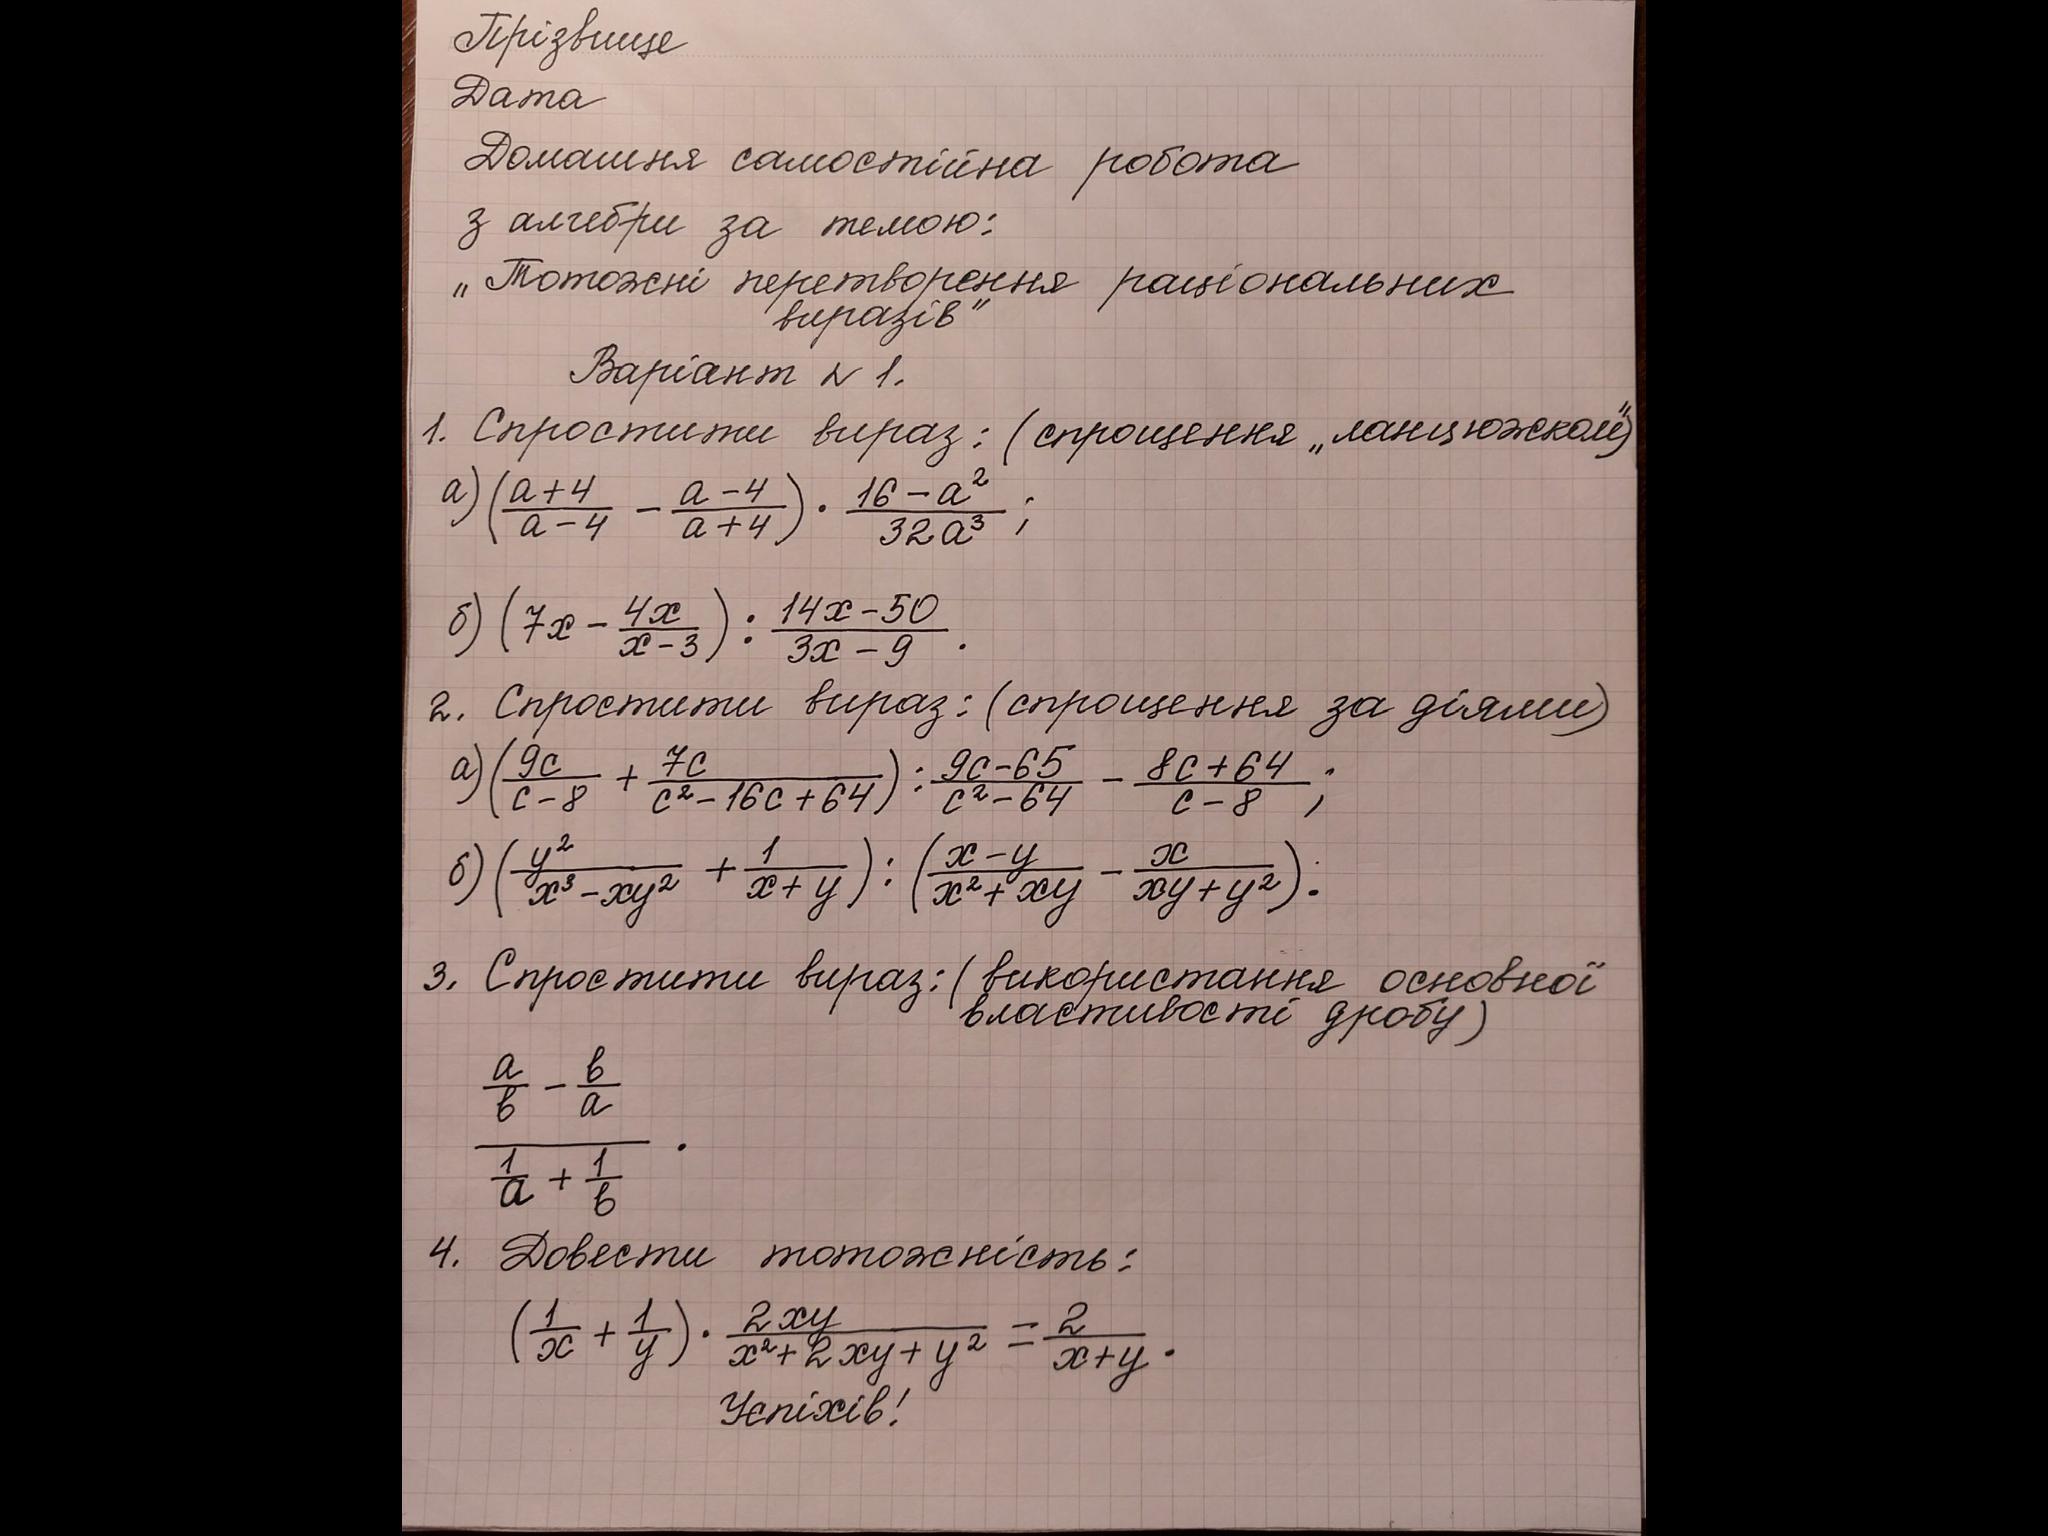 Прізвище
Дата
Домашня самостійна робота
з алгебри за темою:
„Тотожні перетворення раціональних
виразів"
Варіант №1.
1. Спростити вираз: (спрощення „ланцюжком")
а) ((a+4)/(a-4) - (a-4)/(a+4)) · (16-a²)/(32a³);
б) (7x - 4x/(x-3)) : (14x-50)/(3x-9).
2. Спростити вираз: (спрощення за діями)
а) (9c/(c-8) + 7c/(c²-16c+64)) : (9c-65)/(c²-64) - (8c+64)/(c-8);
б) (y²/(x³-xy²) + 1/(x+y)) : ((x-y)/(x²+xy) - x/(xy+y²)).
3. Спростити вираз: (використання основної
властивості дробу)
(a/b - b/a)/(1/a + 1/b).
4. Довести тотожність:
(1/x + 1/y) · 2xy/(x²+2xy+y²) = 2/(x+y).
Успіхів!